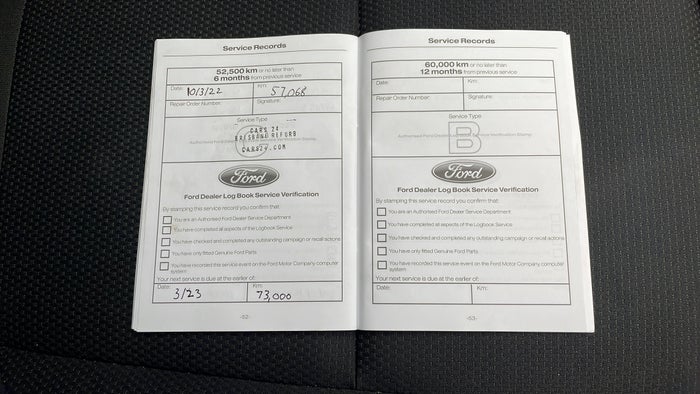 Service Records
52,500 km or no later than
6 months from previous service
Date: 10/3/22
Km: 57,068
Repair Order Number:
Signature:
Service Type
CARS 24
BRISBANE REFURB
CARS24.COM
Ford
Ford Dealer Log Book Service Verification
By stamping this service record you confirm that:
You are an Authorised Ford Dealer Service Department
You have completed all aspects of the Logbook Service
You have checked and completed any outstanding campaign or recall actions
You have only fitted Genuine Ford Parts
You have recorded this service event on the Ford Motor Company computer
system
Your next service is due at the earlier of:
Date: 3/23
Km: 73,000
-52-
Service Records
60,000 km or no later than
12 months from previous service
Date:
Km:
Repair Order Number:
Signature:
Service Type
B
Authorised Ford Dealer Service Verification Stamp
Ford
Ford Dealer Log Book Service Verification
By stamping this service record you confirm that:
You are an Authorised Ford Dealer Service Department
You have completed all aspects of the Logbook Service
You have checked and completed any outstanding campaign or recall actions
You have only fitted Genuine Ford Parts
You have recorded this service event on the Ford Motor Company computer
system
Your next service is due at the earlier of:
Date:
Km:
-53-